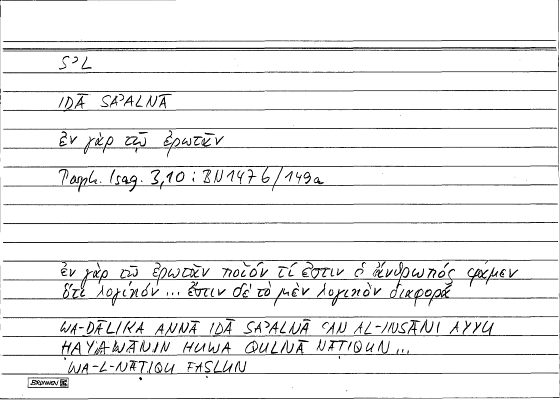 SʾL
IḎĀ SAʾALNĀ
ἐν γὰρ τῷ ἐρωτᾶν
Porph. Isag. 3,10 : BN1476/149a
ἐν γὰρ τῷ ἐρωτᾶν ποῖόν τί ἐστιν ὁ ἄνθρωπός φαμεν
ὅτι λογικόν ... ἔστιν δὲ τὸ μὲν λογικὸν διαφορά
WA-ḎĀLIKA ANNĀ IḎĀ SAʾALNĀ ʿAN AL-INSĀNI AYYU
ḤAYAWĀNIN HUWA QULNĀ NĀṬIQUN...
WA-L-NĀṬIQU FAṢLUN
BRUNNEN